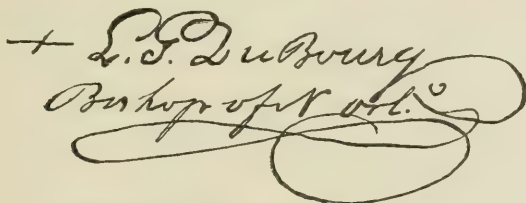 + L. G. DuBourg
Bishop of N orl.°